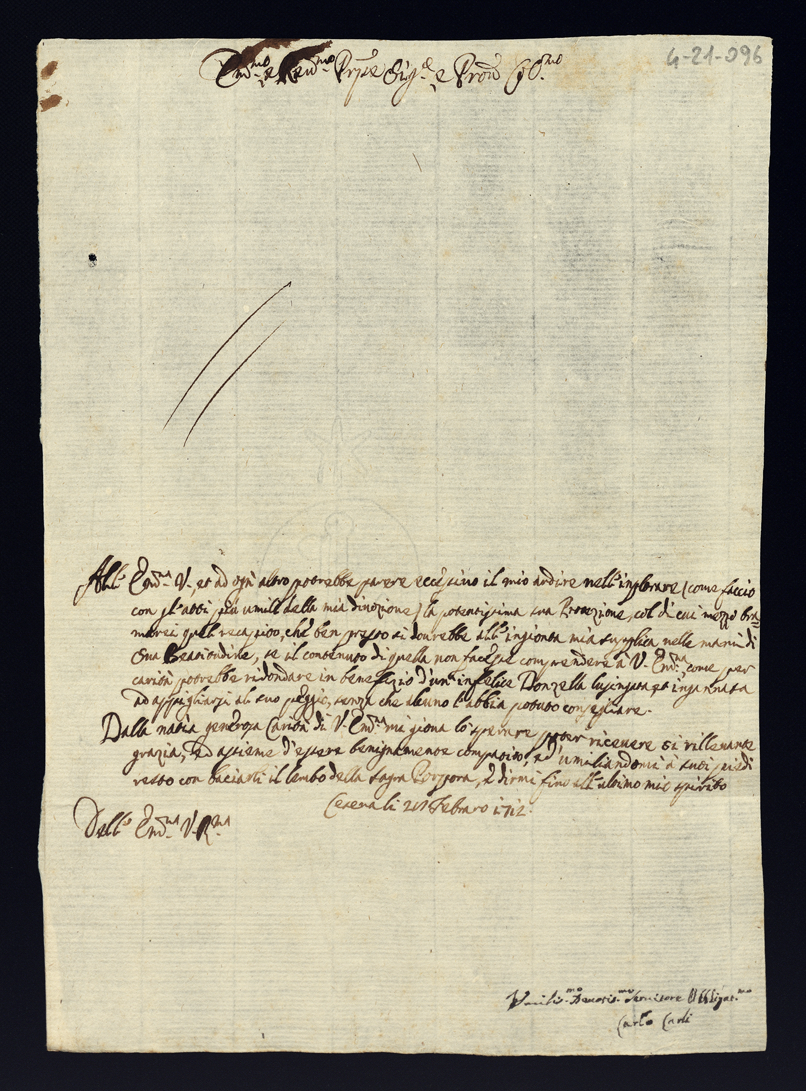 4-21-096
Em.mo e Rev.mo Prpe Sig.re e Pron Col.mo
All'Em.za V., et ad ogn'altro potrebbe parere eccessivo il mio ardire nell'implorare (come faccio
con gl'atti più umili della mia divozione) la potentissima sua Protezione, col di cui mezzo bra=
merei quel recapito, che ben presto si dovrebbe all'ingionta mia supplica nelle mani di
Sua Beatitudine, se il contenuto di quella non facesse comprendere à V. Em.za come per
carità potrebbe ridondare in benefizio d'un'infelice Donzella lusingata et ingannata
ad appigliarsi al suo peggio, senza che alcuno l'abbia potuto consigliare.
Dalla natia generosa Carità di V. Em.za mi giova lo sperare poter ricevere sì rillevante
grazia, ed assieme d'essere benignamente compatito, ed umiliandomi à suoi piedi
resto con baciarli il lembo della sagra Porpora, e dirmi fino all'ultimo mio spirito
Cesena li 20 Febraro 1712
Dell'Em.za V. R.ma
Umilis.mo Devotis.mo Servitore Obbligat.mo
Carlo Carli